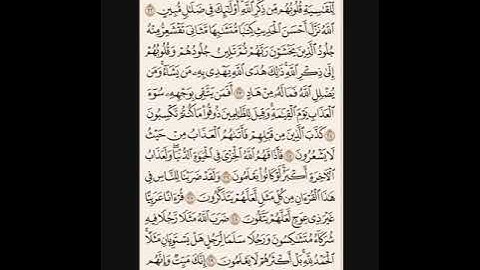 لِّلْقَاسِيَةِ قُلُوبُهُم مِّن ذِكْرِ اللَّهِ أُولَٰئِكَ فِي ضَلَالٍ مُّبِينٍ ٢٢
اللَّهُ نَزَّلَ أَحْسَنَ الْحَدِيثِ كِتَابًا مُّتَشَابِهًا مَّثَانِيَ تَقْشَعِرُّ مِنْهُ
جُلُودُ الَّذِينَ يَخْشَوْنَ رَبَّهُمْ ثُمَّ تَلِينُ جُلُودُهُمْ وَقُلُوبُهُمْ
إِلَىٰ ذِكْرِ اللَّهِ ذَٰلِكَ هُدَى اللَّهِ يَهْدِي بِهِ مَن يَشَاءُ وَمَن
يُضْلِلِ اللَّهُ فَمَا لَهُ مِنْ هَادٍ ٢٣ أَفَمَن يَتَّقِي بِوَجْهِهِ سُوءَ
الْعَذَابِ يَوْمَ الْقِيَامَةِ وَقِيلَ لِلظَّالِمِينَ ذُوقُوا مَا كُنتُمْ تَكْسِبُونَ
٢٤ كَذَّبَ الَّذِينَ مِن قَبْلِهِمْ فَأَتَاهُمُ الْعَذَابُ مِنْ حَيْثُ
لَا يَشْعُرُونَ ٢٥ فَأَذَاقَهُمُ اللَّهُ الْخِزْيَ فِي الْحَيَاةِ الدُّنْيَا وَلَعَذَابُ
الْآخِرَةِ أَكْبَرُ لَوْ كَانُوا يَعْلَمُونَ ٢٦ وَلَقَدْ ضَرَبْنَا لِلنَّاسِ فِي
هَٰذَا الْقُرْآنِ مِن كُلِّ مَثَلٍ لَّعَلَّهُمْ يَتَذَكَّرُونَ ٢٧ قُرْآنًا عَرَبِيًّا
غَيْرَ ذِي عِوَجٍ لَّعَلَّهُمْ يَتَّقُونَ ٢٨ ضَرَبَ اللَّهُ مَثَلًا رَّجُلًا فِيهِ
شُرَكَاءُ مُتَشَاكِسُونَ وَرَجُلًا سَلَمًا لِّرَجُلٍ هَلْ يَسْتَوِيَانِ مَثَلًا
الْحَمْدُ لِلَّهِ بَلْ أَكْثَرُهُمْ لَا يَعْلَمُونَ ٢٩ إِنَّكَ مَيِّتٌ وَإِنَّهُم